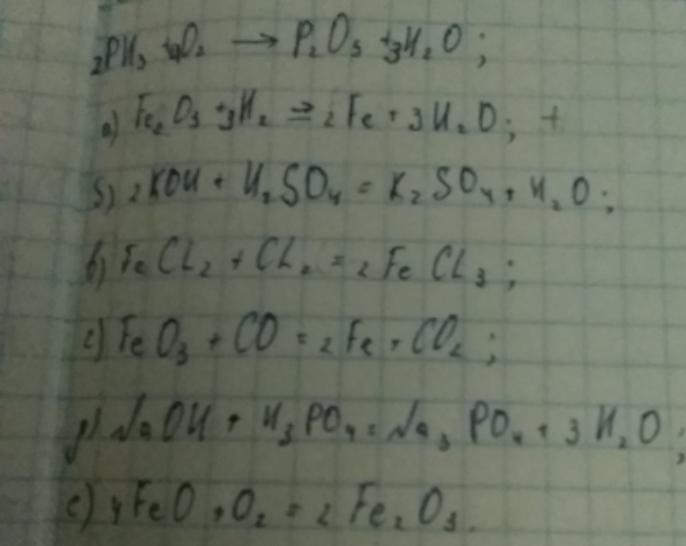 2PH₃ + 4O₂ → P₂O₅ + 3H₂O;
а) Fe₂O₃ + 3H₂ = 2Fe + 3H₂O; +
б) 2KOH + H₂SO₄ = K₂SO₄ + H₂O;
в) FeCL₂ + CL₂ = 2FeCL₃;
г) FeO₃ + CO = 2Fe + CO₂;
д) NaOH + H₃PO₄ = Na₃PO₄ + 3H₂O;
е) 4FeO + O₂ = 2Fe₂O₃.